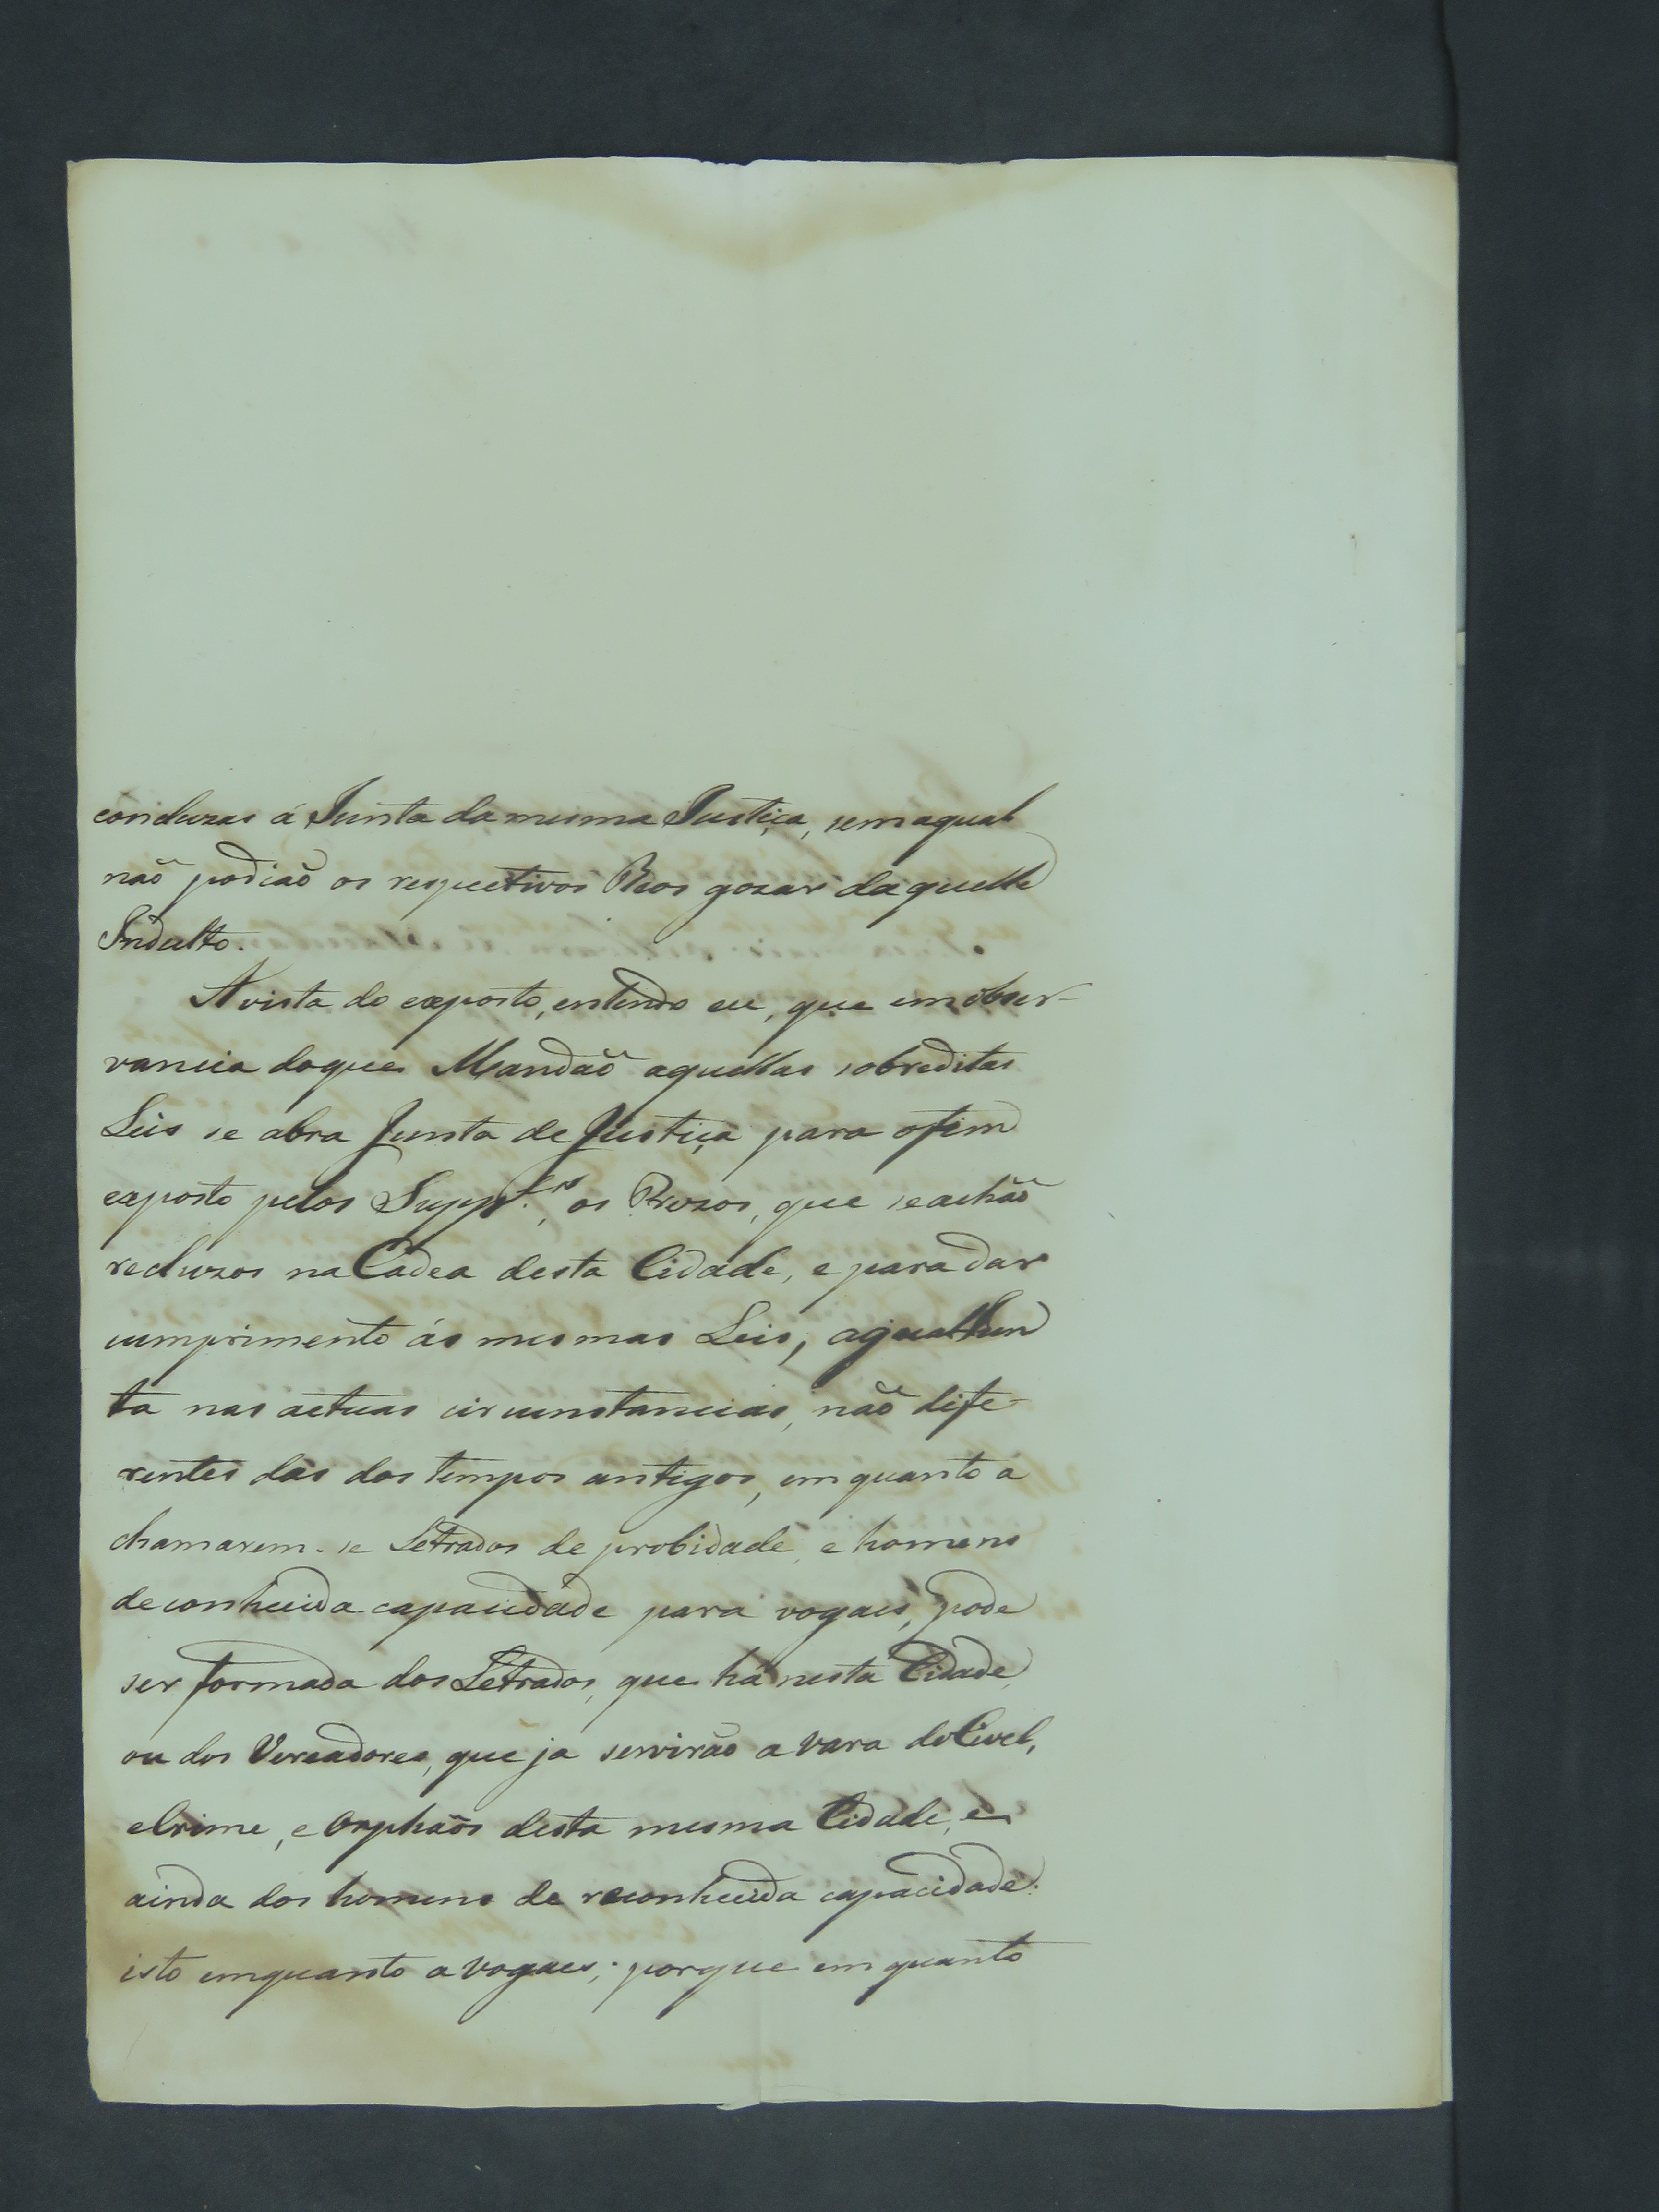 concluzas á Junta da mesma Justiça, sem a qual
não podião os respectivos Reos gozar daquelle
Indulto.
A vista do exposto, entendo eu, que em obser-
vancia do que Mandão aquellas sobreditas
Leis se abra Junta de Justiça para o fim
exposto pelos Supp.es, os Prezos, que se achão
recluzos na Cadea desta Cidade, e para dar
cumprimento ás mesmas Leis, a qual Jun
ta nas actuas circunstancias, não dife-
rentes das dos tempos antigos, em quanto a
chamarem-se Letrados de probidade, e homens
de conhecida capacidade para vogaes, pode
ser formada dos Letrados, que há nesta Cidade,
ou dos Vereadores, que ja servirão a vara do Civel,
e Crime, e Orphãos desta mesma Cidade, e
ainda dos homens de reconhecida capacidade:
isto emquanto a vogaes; porque em quanto